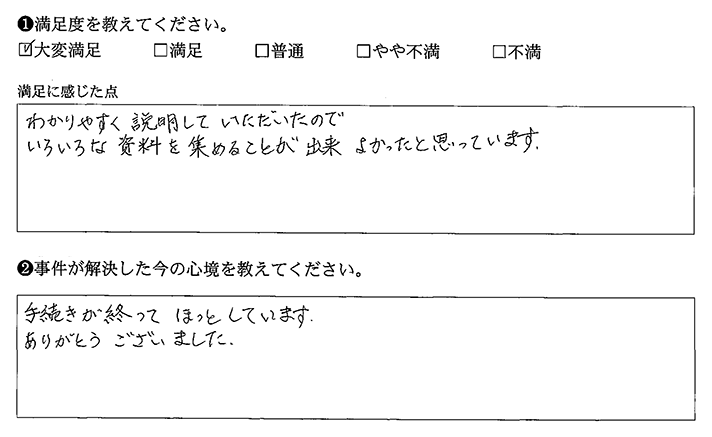 ❶満足度を教えてください。
☑大変満足 □満足 □普通 □やや不満 □不満
満足に感じた点
わかりやすく 説明して いただいたので
いろいろな 資料を 集めることが 出来 よかったと思っています.
❷事件が解決した今の心境を教えてください。
手続きが終って ほっと しています.
ありがとう ございました.